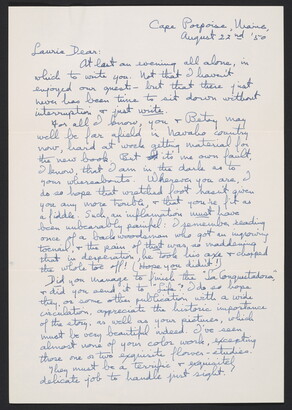 Cape Porpoise, Maine,
August 22nd '50
Laura Dear:
At last an evening all alone, in
which to write you. Not that I haven't
enjoyed our guest - but that there just
never has been time to sit down without
interruption & just write.
For all I know, you & Betsy may
well be far afield in Navaho country
now, hard at work getting material for
the new book. But it's me own fault,
I know, that I am in the dark as to
your whereabouts. Wherever you are, I
do so hope that wretched foot hasn't given
you any more trouble, & that you're fit as
a fiddle. Such an inflamation must have
been unbearably painful. I remember reading
once of a backwoodsman who got an ingrowing
toenail & the pain of that was so maddening
that in desperation, he took his axe & chopped
the whole toe off! (Hope you didn't!)
Did you manage to finish the "La Conquistadora"
& did you send it to "Life"? I do so hope
they, or some other publication with a wide
circulation, appreciate the historic importance
of the story, as well as your pictures, which
must be very beautiful indeed. I've seen
almost none of your color work, excepting
those one or two exquisite flower-studies.
They must be a terrific & exquisitely
delicate job to handle just right!